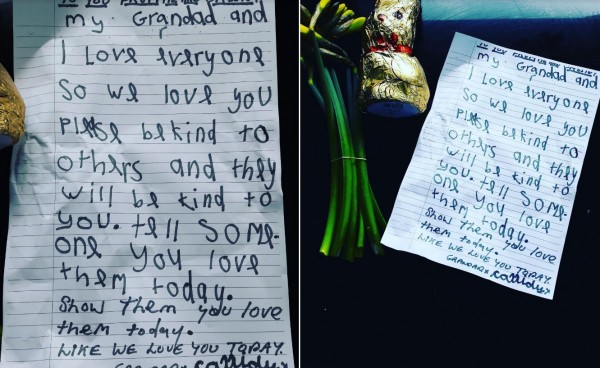 my. Grandad and
I Love everyone
So we love you
Please be kind to
others and they
will be kind to
you. tell SOME-
one you love
them today.
Show them you love
them today.
LIKE WE LOVE YOU TODAY.
my. Grandad and
I Love everyone
So we love you
Please be kind to
others and they
will be kind to
you. tell SOME-
one you love
them today.
Show them you love
them today.
LIKE WE LOVE YOU TODAY.